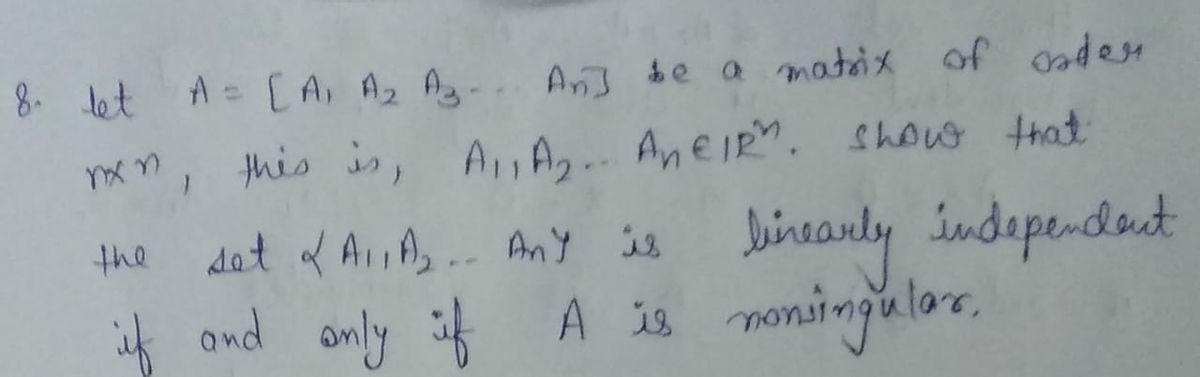 8. let A = [ A₁ A₂ A₃ ... An] be a matrix of order
nxn, this is, A₁, A₂ .. An ∈ IRⁿ. show that
the set { A₁, A₂ .. An } is linearly independent
if and only if A is nonsingular.